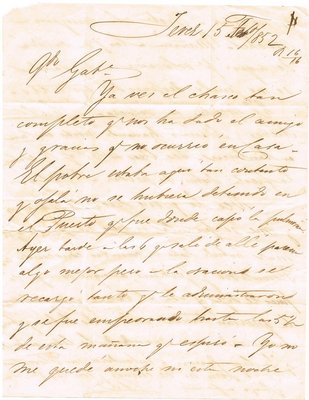 Jerez 15 Feb 1852
R 16/16
Qdo Gabl
Ya ves el chasco tan
completo q nos ha dado el amigo
y gracias q no ocurrio en Casa.
El pobre estaba aqui tan contento
y ojalá no se hubiera detenido en
el Puerto q fue donde cogió la
Ayer tarde a las 6 q salí de allí
algo mejor pero a la oracion se
recargó tanto q le administraron
y se fue empeorando hasta las 5½
de esta mañana q espiró. Yo no
me quedé anoche ni esta noche